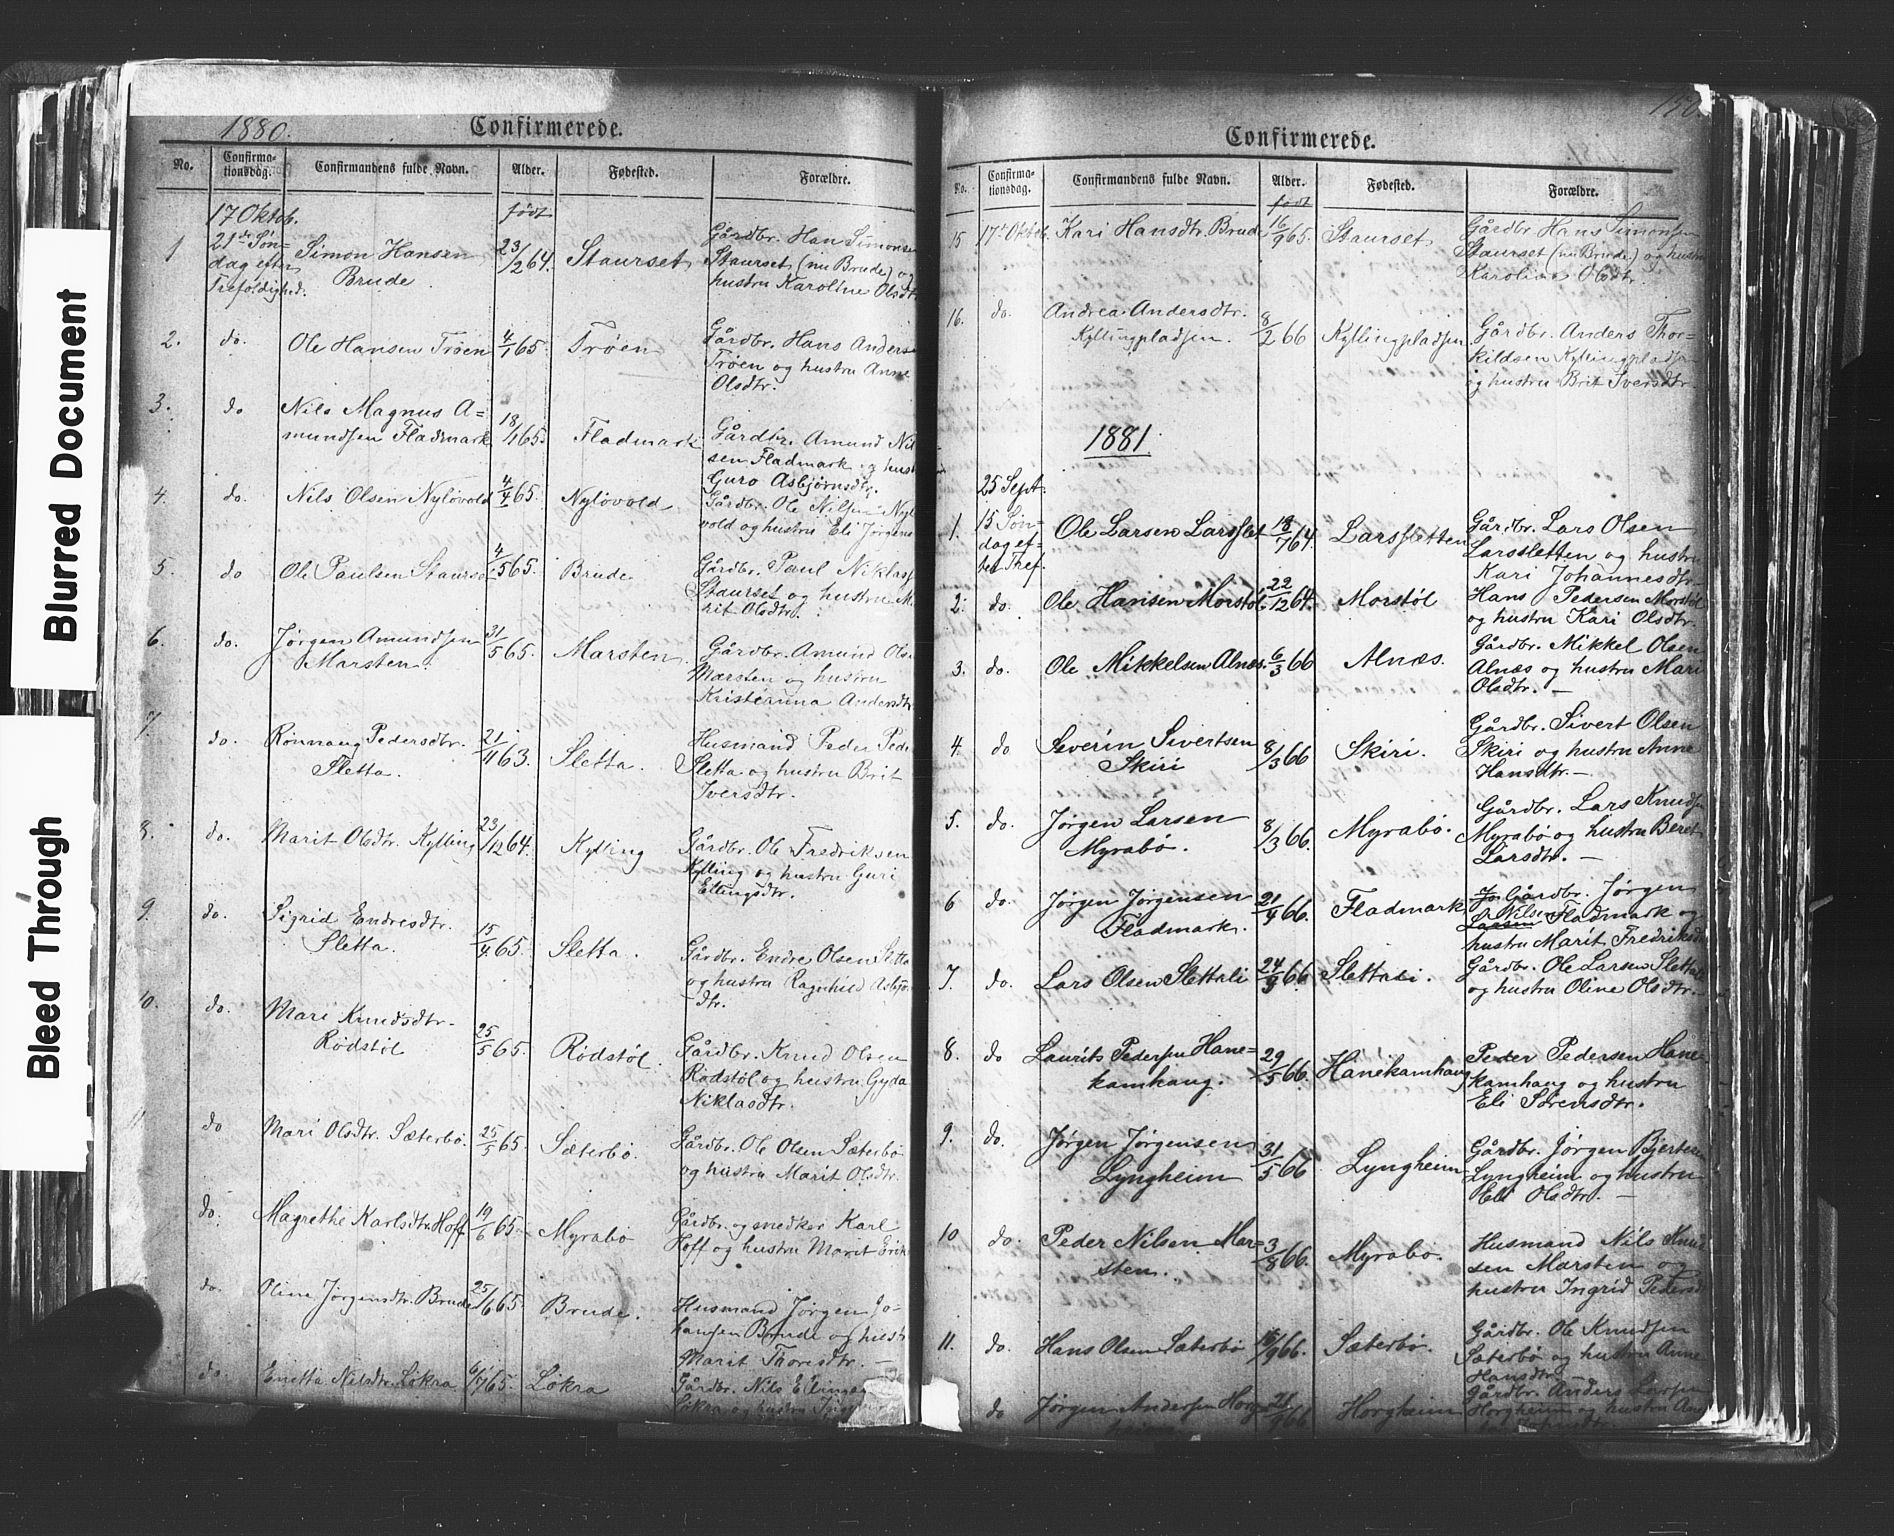 Blurred Document
Bleed Through
1880.
Confirmerede.
No. Confirma- Confirmandens fulde Navn. Alder. Fødested. Forældre.
tionsdag.
17 Oktob. født
1 21de Søn- Simon Hansen 23/12 64. Staurset Gårdbr. Han Simonsen
dag efter Brude. Staurset (nu Brude) og
Trefoldighed. hustru Karoline Olsdtr.
2. do. Ole Hansen Trøen 4/1 65. Trøen Gårdbr. Hans Anders
Trøen og hustru Anne
Olsdtr.
3. do Nils Magnus A=
mundsen Fladmark 18/1 65. Fladmark Gårdbr. Amund Nil
sen Fladmark og hust
Guro Asbjørnsdtr.
4. do. Nils Olsen Nyløvold 4/4 65. Nyløvold Gårdbr. Ole Nilsen Nyl
vold og hustru Eli Jørgens
5. do Ole Paulsen Staurse 4/5 65. Brude Gårdbr. Paul Niklas
Staurset og hustru Ma
rit Olsdtr.
6. do. Jørgen Amundsen 31/5 65. Marsten Gårdbr. Amund Ols
Marsten. Marsten og hustru
Andersdtr.
7. do. Rønnaug Pedersdtr. 21/11 63. Sletta. Husmand Peder Pede
Sletta. Sletta og hustru Brit
Iversdtr.
8. do. Marit Olsdtr. Kylling 23/12 64. Kylling Gårdbr. Ole Fredriksen
Kylling og hustru Guri
Ellingsdtr.
9. do. Sigrid Endresdtr. 15/4 65. Sletta. Gårdbr. Endre Olsen Sletta
Sletta. og hustru Ragnhild Asbjø
dtr.
10. do. Mari Knudsdtr. 25/5 65. Rødstøl. Gårdbr. Knud Olsen
Rødstøl Rødstøl og hustru Gyda
Niklasdtr.
11 do Mari Olsdtr. Sæterbø. 25/5 65. Sæterbø. Gårdbr. Ole Olsen Sæterbø
og hustru Marit Olsdtr.
do. Magrethe Karlsdtr. Hoff 19/6 65. Myrabø Gårdbr. og snedker Karl
Hoff og hustru Marit Erik
do. Oline Jørgensdtr. Brude 25/6 65. Brude. Husmand Jørgen Jo-
hansen Brude og hust
Marit Thoresdtr. —
do. Nilsdtr. Løkra 6/7 65. Løkra Gårdbr. Nils Elling
Løkra og hustru
150
Confirmerede.
No. Confirma- Confirmandens fulde Navn. Alder. Fødested. Forældre.
tionsdag.
født
15 17de Oktob. Kari Hansdtr. Brude 16/9 65. Staurset Gårdbr Hans Simonsen
Staurset (nu Brude) og hustru
Karoline Olsdtr.
16. do. Andrea Andersdtr. 8/2 66 Kyllingpladsen Gårdbr. Anders Thor-
Kyllingpladsen. kildsen Kyllingpladsen
og hustru Brit Iversdtr.
1881.
25 Sept.
1. 15 Søn- Ole Larsen Larsslet 18/7 64. Larssletten Gårdbr. Lars Olsen
dag ef- Larssletten og hustru
ter Tref. Kari Johannesdtr.
2. do. Ole Hansen Morstøl. 22/12 64. Morstøl Hans Pedersen Morstøl
og hustru Kari Olsdtr.
3. do. Ole Mikkelsen Alnæs. 6/3 66 Alnæs. Gårdbr. Mikkel Olsen
Alnæs og hustru Mari
Olsdtr. —
4. do Severin Sivertsen 8/3 66 Skiri. Gårdbr. Sivert Olsen
Skiri Skiri og hustru Anne
Hansdtr. —
5. do. Jørgen Larsen 8/3 66. Myrabø. Gårdbr. Lars Knudsen
Myrabø. Myrabø og hustru Beret
Larsdtr. —
6 do. Jørgen Jørgensen 21/4 66. Fladmark Jo Gårdbr. Jørgen
Fladmark. Larsen Nilsen Fladmark og
hustru Marit Fredriksd
7. do. Lars Olsen Slettali 24/9 66. Slettali. Gårdbr. Ole Larsen Slettali
og hustru Oline Olsdtr.
8. do Laurits Pedersen Hane= 29/5 66. Hanekamhaug Peder Pedersen Hane-
kamhaug. kamhaug og hustru
Eli Sørensdtr.
9. do. Jørgen Jørgensen 31/5 66 Lyngheim Gårdbr. Jørgen Bjertesen
Lyngheim Lyngheim og hustru
Eli Olsdtr. —
10 do. Peder Nilsen Mar= 3/8 66. Myrabø. Husmand Nils Knud
sten. sen Marsten og
hustru Ingrid Pedersd
11. do Hans Olsen Sæterbø 16/9 66. Sæterbø. Gårdbr. Ole Knudsen
Sæterbø og hustru Anne
Hansdtr. —
do Jørgen Andersen Horg 21/9 66 Horgheim Gårdbr. Anders Larsen
heim Horgheim og hustru Ane